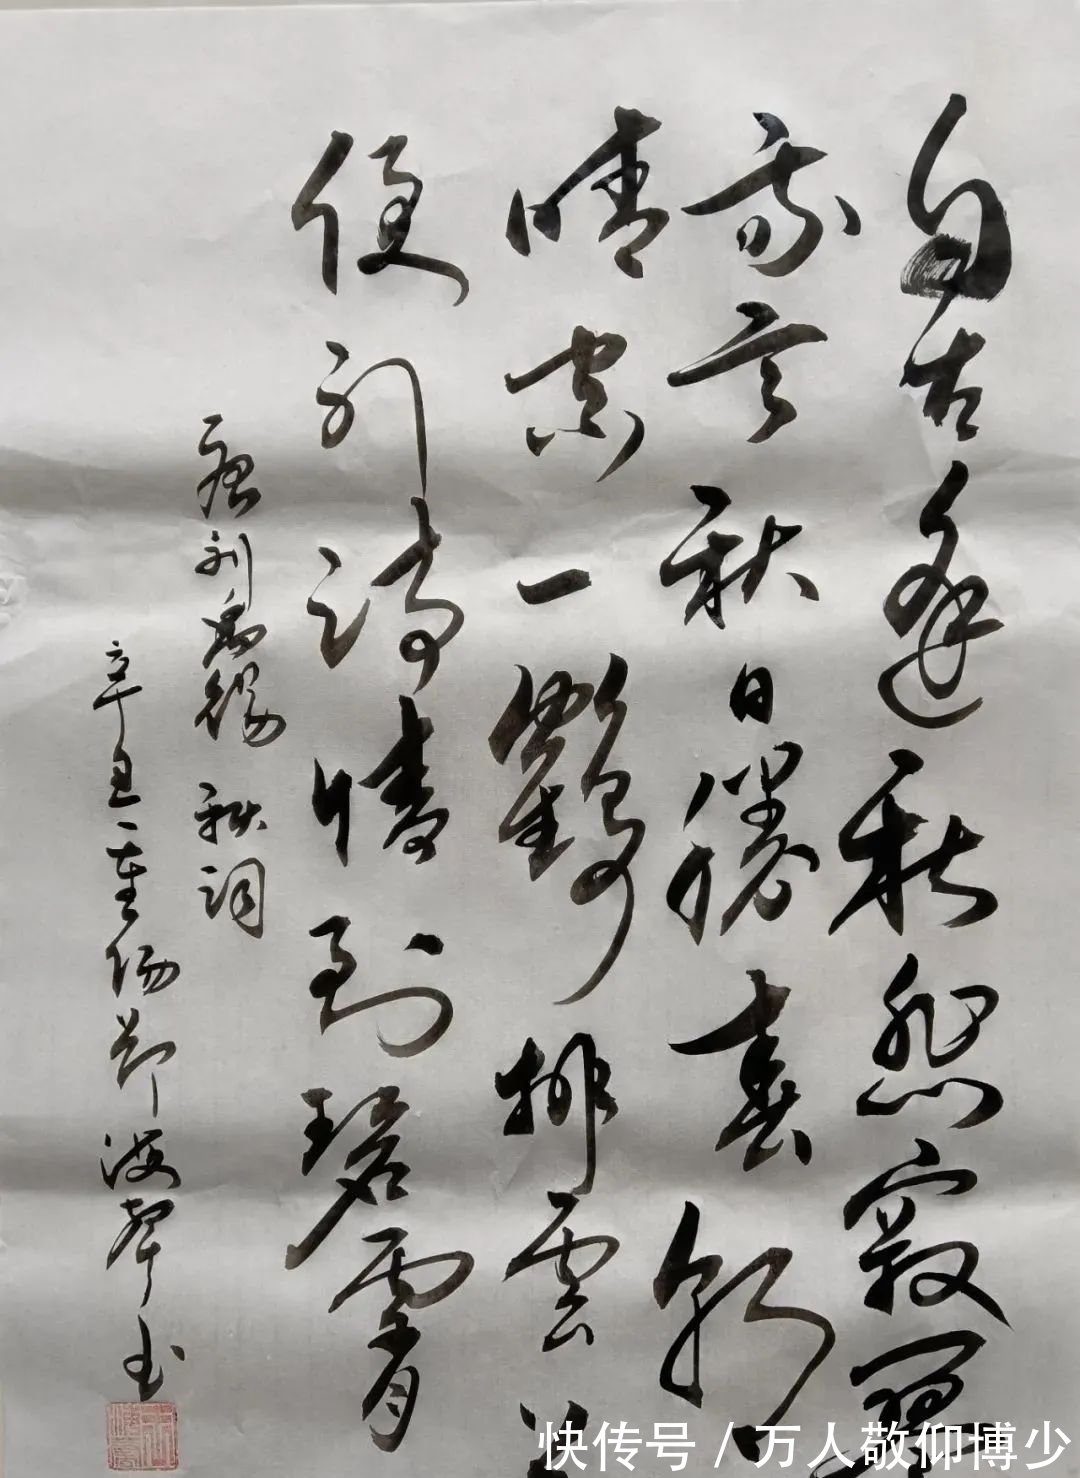 自古逢秋悲寂寥
我言秋日勝春朝
晴空一鶴排雲上
便引詩情到碧霄
唐刘禹锡 秋词
辛丑重阳 海 书
快传号 / 万人敬仰博少